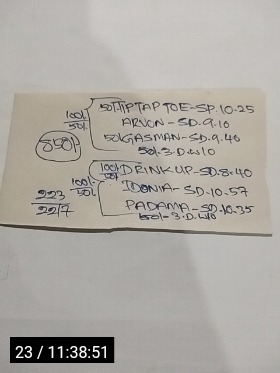 50/- TIPTAP TOE - SP. 10.25
100/-
50/-
ARNON - SD. 9.10
50/- GASMAN - SD. 9.40
850/-
50/- 3.D.W/O
100/-
50/-
DRINK UP - SD. 8.40
100/-
50/-
IDONIA - SD. 10.57
223
2217
PADAMA - SD. 10.35
50/- 3.D.W/O
23 / 11:38:51